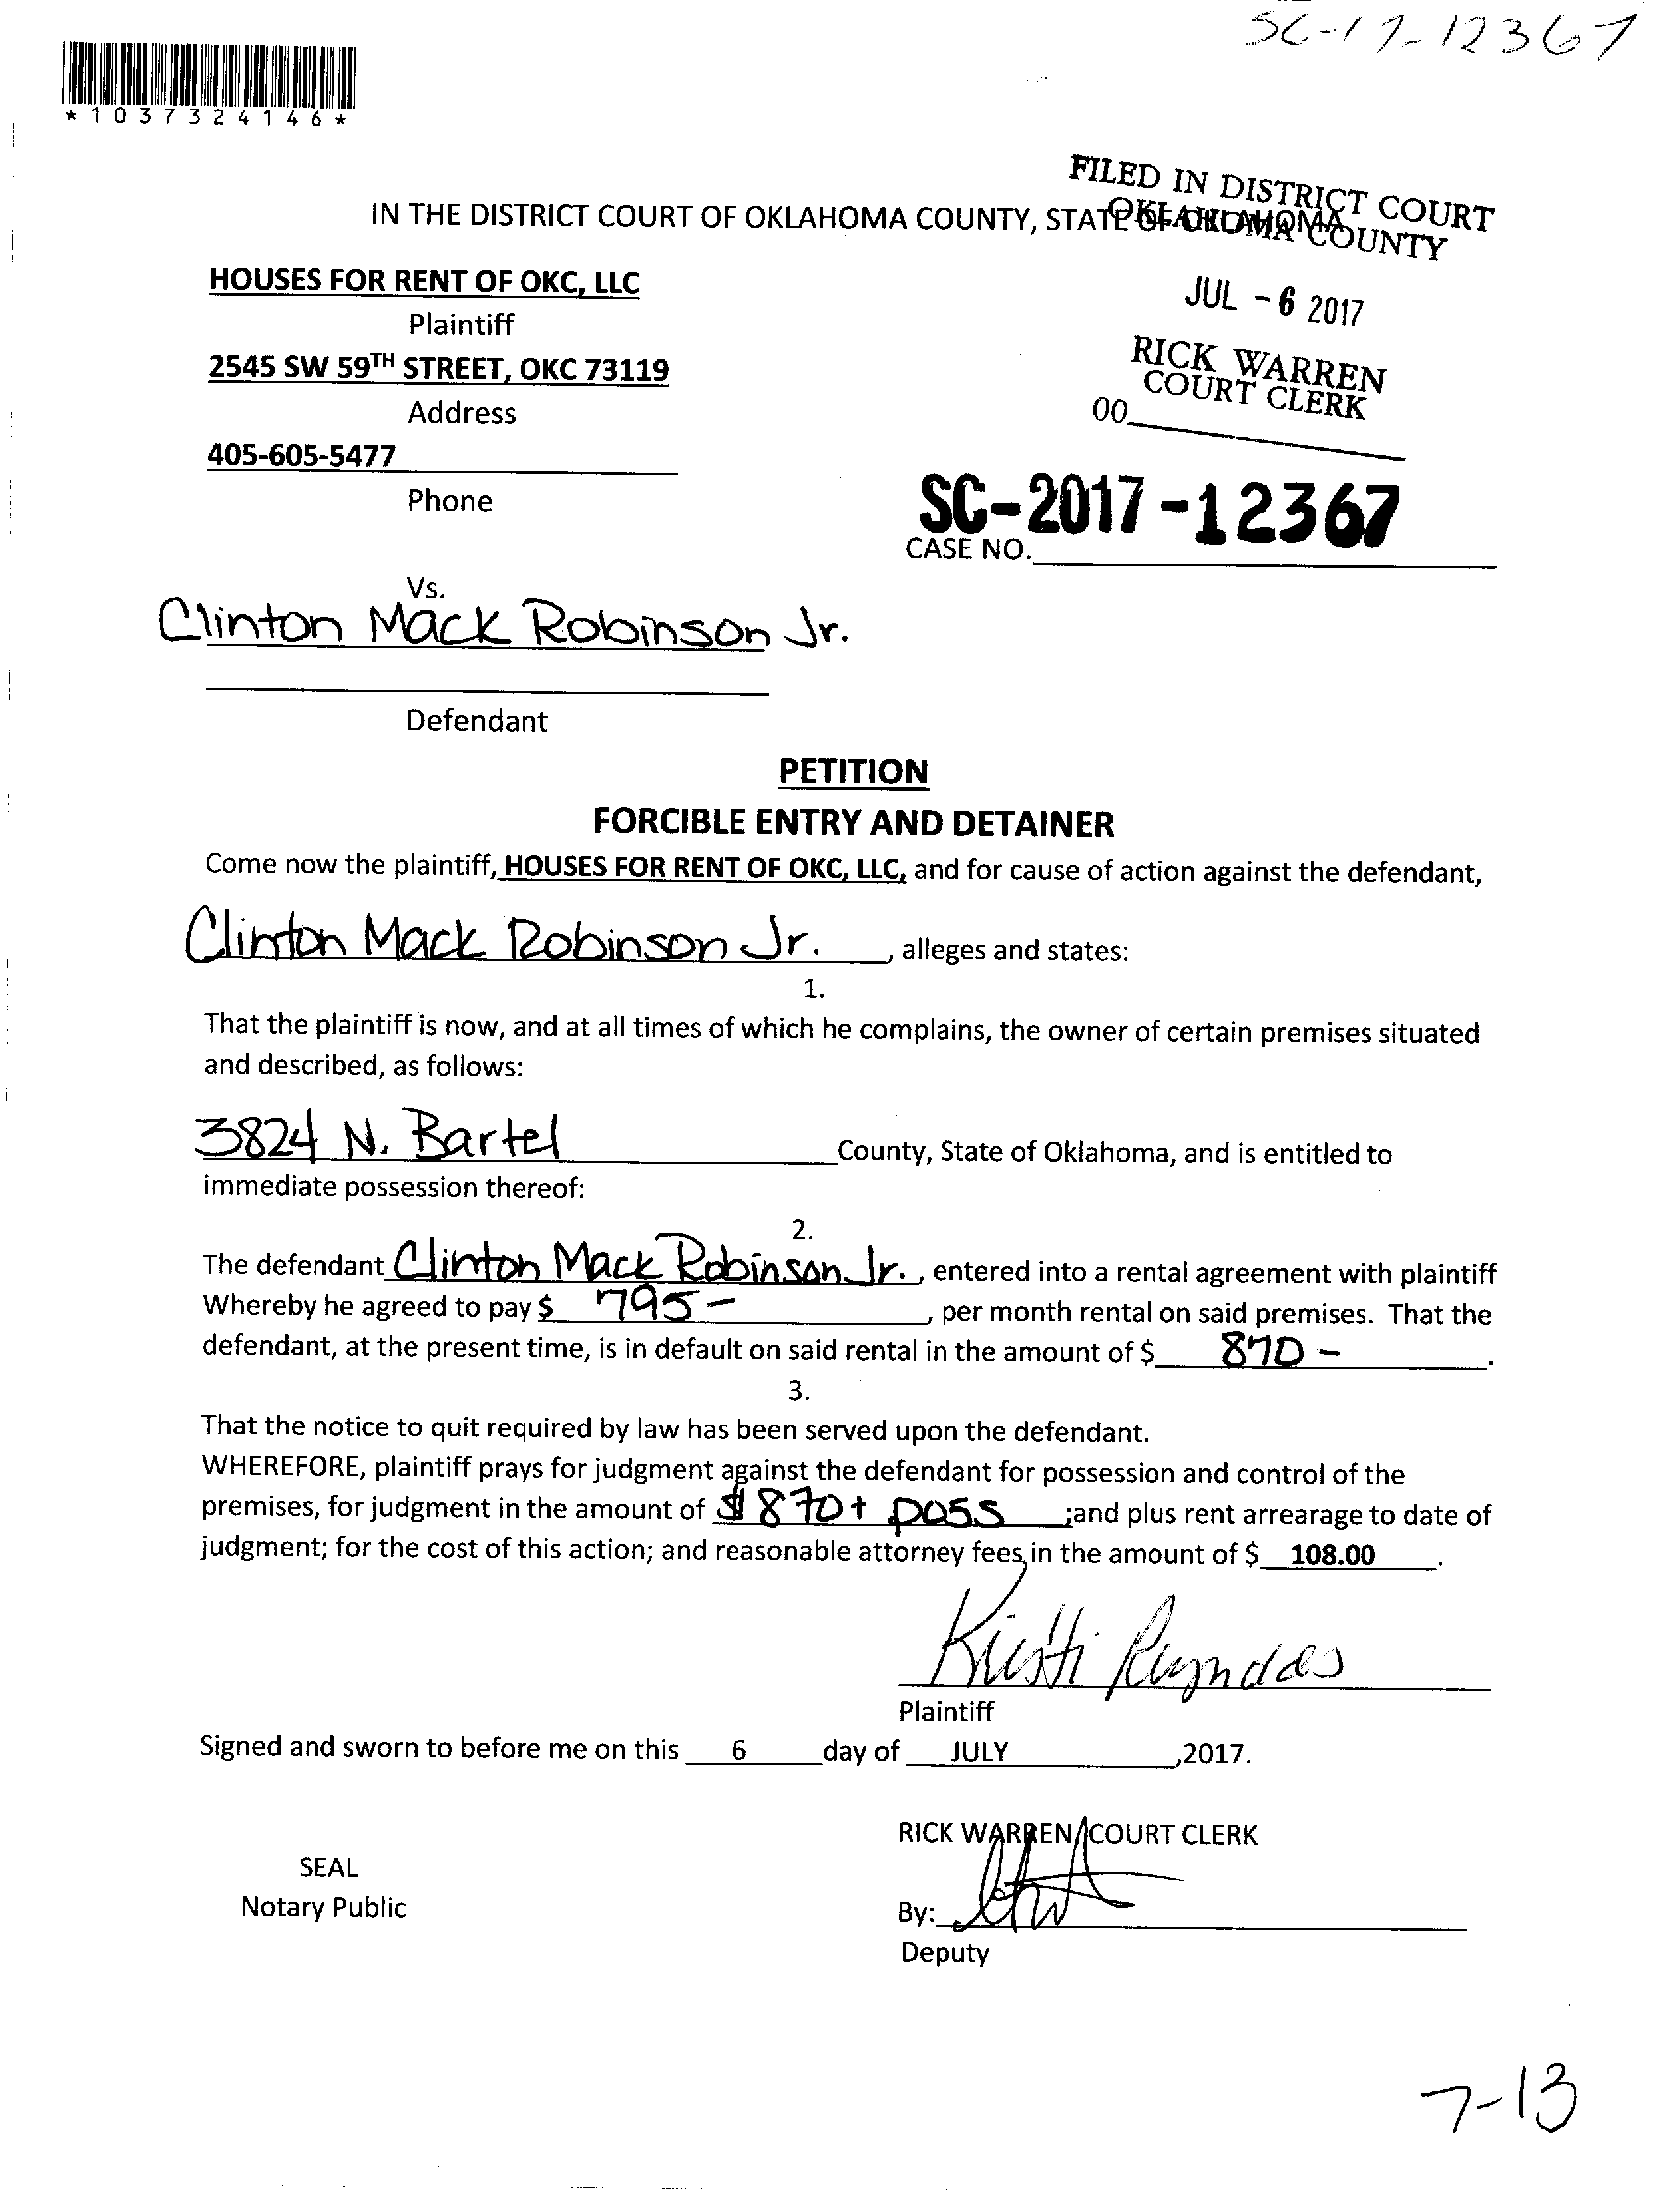 SC-17-12367
*1037324146*
FILED IN DISTRICT COURT
OKLAHOMA COUNTY
IN THE DISTRICT COURT OF OKLAHOMA COUNTY, STATE OF OKLAHOMA
HOUSES FOR RENT OF OKC, LLC
JUL - 6 2017
Plaintiff
2545 SW 59TH STREET, OKC 73119
RICK WARREN
COURT CLERK
Address
00
405-605-5477
Phone
SC-2017-12367
CASE NO.
Vs.
Clinton Mack Robinson Jr.
Defendant
PETITION
FORCIBLE ENTRY AND DETAINER
Come now the plaintiff, HOUSES FOR RENT OF OKC, LLC, and for cause of action against the defendant,
Clinton Mack Robinson Jr., alleges and states:
1.
That the plaintiff is now, and at all times of which he complains, the owner of certain premises situated
and described, as follows:
3824 N. Bartel County, State of Oklahoma, and is entitled to
immediate possession thereof:
2.
The defendant Clinton Mack Robinson Jr., entered into a rental agreement with plaintiff
Whereby he agreed to pay $ 795-, per month rental on said premises. That the
defendant, at the present time, is in default on said rental in the amount of $ 870-.
3.
That the notice to quit required by law has been served upon the defendant.
WHEREFORE, plaintiff prays for judgment against the defendant for possession and control of the
premises, for judgment in the amount of $870+ poss ;and plus rent arrearage to date of
judgment; for the cost of this action; and reasonable attorney fees in the amount of $ 108.00.
Kristi Reynolds
Plaintiff
Signed and sworn to before me on this 6 day of JULY ,2017.
RICK WARREN, COURT CLERK
SEAL
Notary Public
By:
Deputy
7-13